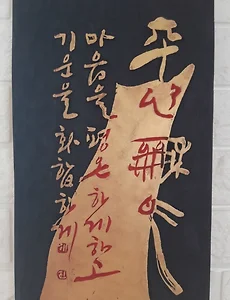 平心龢
마음을 평온하게 하고
기운을 화합하게